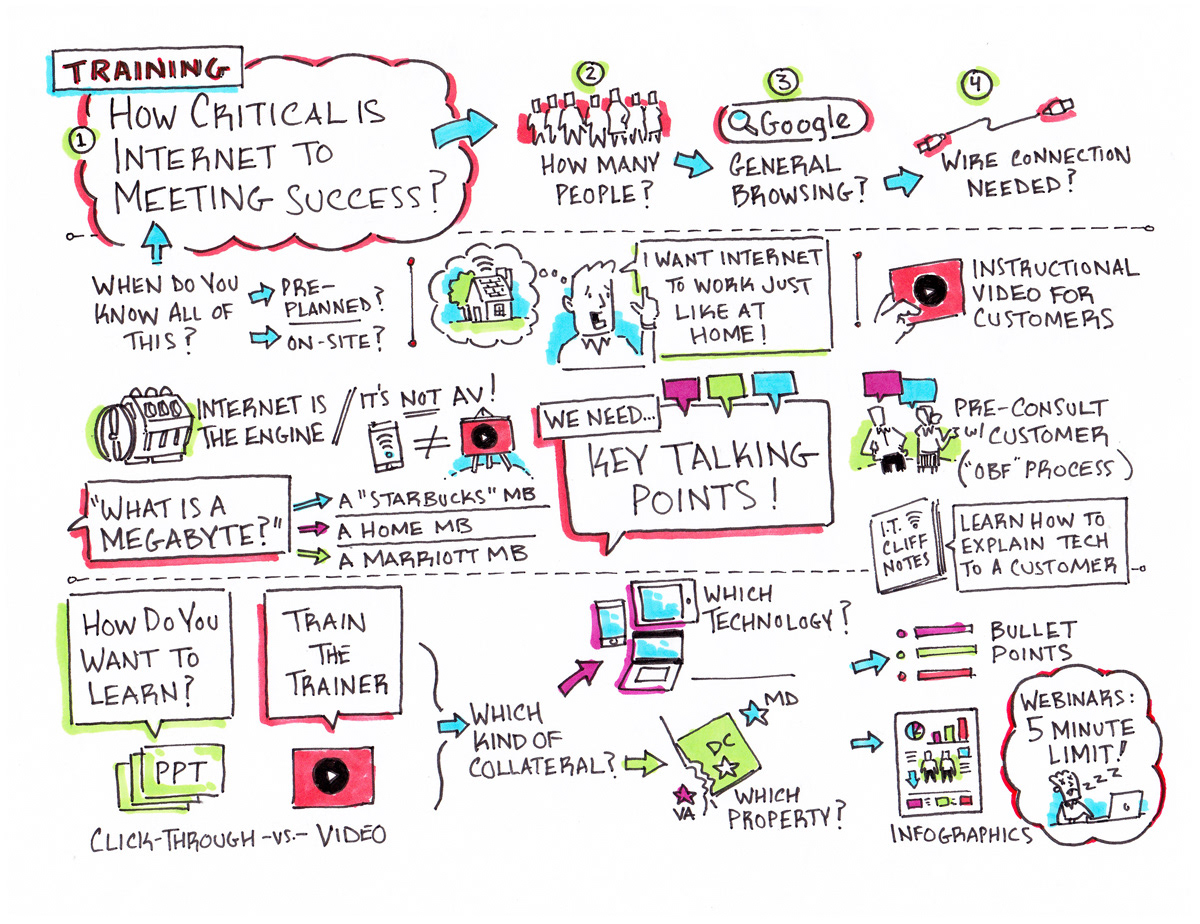 TRAINING
1
HOW CRITICAL IS
INTERNET TO
MEETING SUCCESS?
2
HOW MANY
PEOPLE?
3
Google
GENERAL
BROWSING?
4
WIRE CONNECTION
NEEDED?
WHEN DO YOU
KNOW ALL OF
THIS?
PRE-
PLANNED?
ON-SITE?
I WANT INTERNET
TO WORK JUST
LIKE AT
HOME!
INSTRUCTIONAL
VIDEO FOR
CUSTOMERS
INTERNET IS
THE ENGINE
IT'S NOT AV!
≠
WE NEED...
KEY TALKING
POINTS!
PRE-CONSULT
W/ CUSTOMER
("OBF" PROCESS)
"WHAT IS A
MEGABYTE?"
A "STARBUCKS" MB
A HOME MB
A MARRIOTT MB
I.T.
CLIFF
NOTES
LEARN HOW TO
EXPLAIN TECH
TO A CUSTOMER
HOW DO YOU
WANT TO
LEARN?
PPT
TRAIN
THE
TRAINER
CLICK-THROUGH -VS- VIDEO
WHICH
KIND OF
COLLATERAL?
WHICH
TECHNOLOGY?
MD
DC
VA
WHICH
PROPERTY?
BULLET
POINTS
INFOGRAPHICS
WEBINARS:
5 MINUTE
LIMIT!
ZZZZ